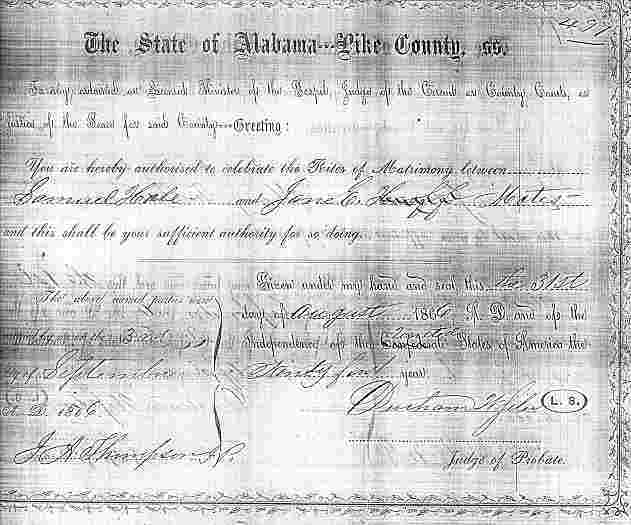 491
The State of Alabama---Pike County, ss.
To any ordained or Licensed Minister of the Gospel, Judge of the Circuit or County Courts, or
Justice of the Peace for said County---Greeting:
You are hereby authorised to celebrate the Rites of Matrimony between
Samuel Hale and Jane E. Mates
and this shall be your sufficient authority for so doing.
Given under my hand and seal, this the 31st
day of August 1866 A. D. and of the
Independence of the Confederate United States of America the
year
L. S.
Judge of Probate.
The above named parties were
on the 3rd
day of September
A. D. 1866
J. A. Thompson J. P.